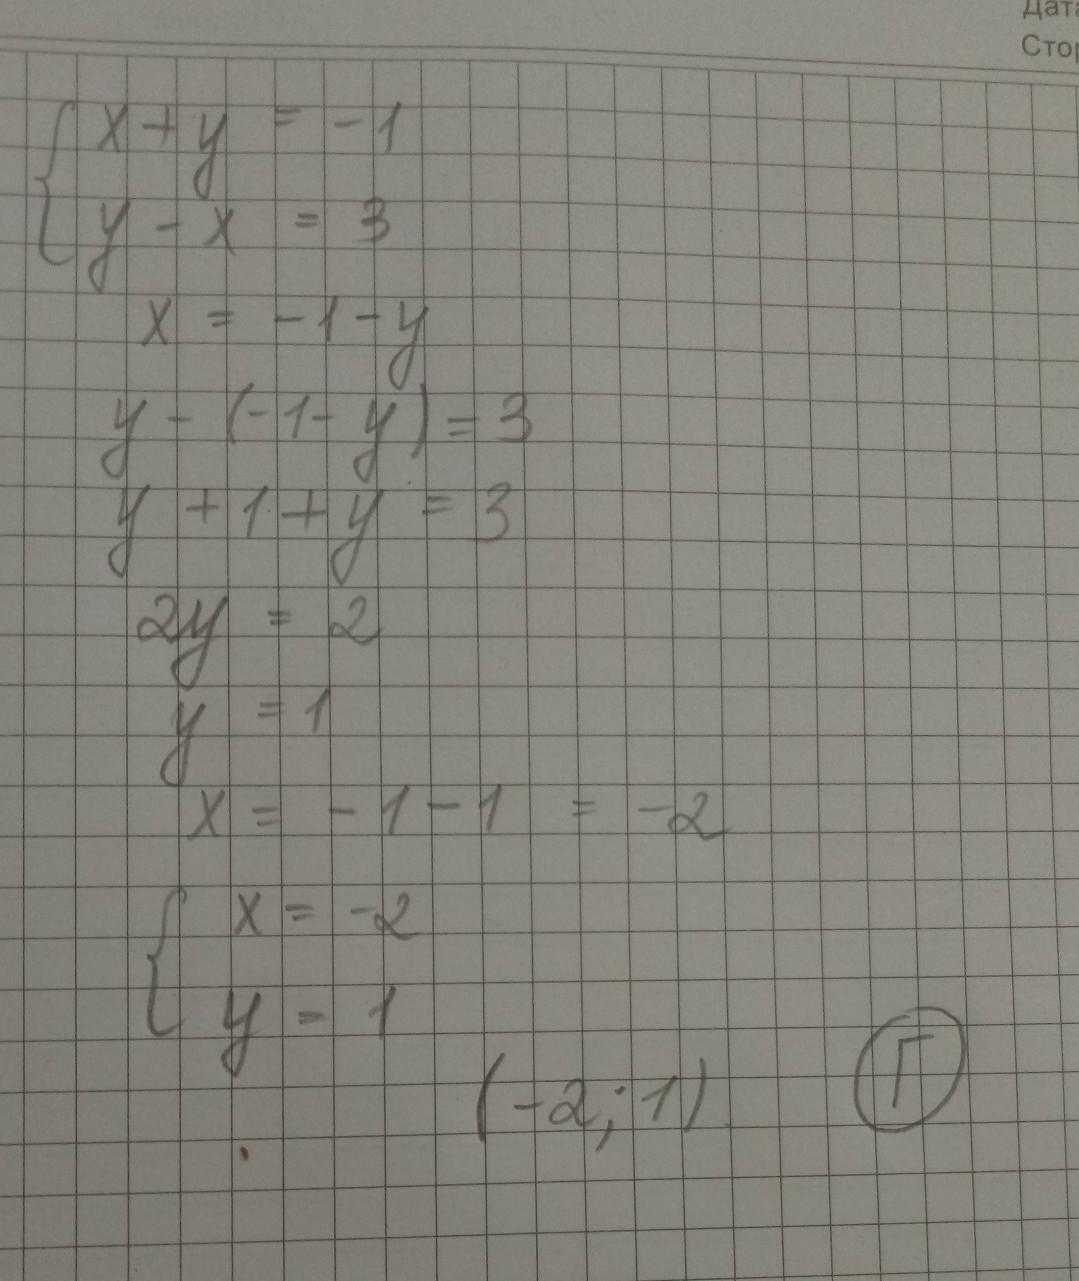 Дата
Стор
{ x + y = -1
y - x = 3
x = -1 - y
y - (-1 - y) = 3
y + 1 + y = 3
2y = 2
y = 1
x = -1 - 1 = -2
{ x = -2
y = 1
(-2; 1) Г